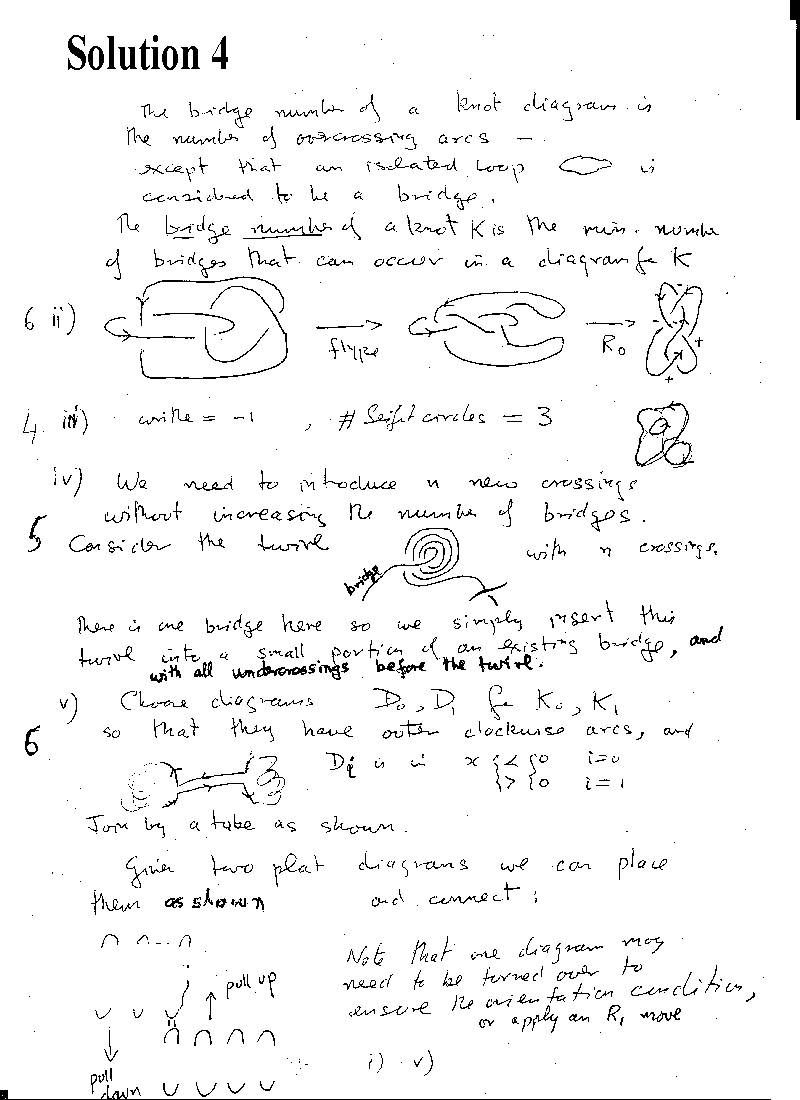 Solution 4
The bridge number of a knot diagram is
the number of overcrossing arcs –
except that an isolated loop is
considered to be a bridge.
The bridge number of a knot K is the min. number
of bridges that can occur in a diagram for K
6 ii) flype R0
4 iii) writhe = -1 , # Seifert circles = 3
iv) We need to introduce n new crossings
without increasing the number of bridges.
5 Consider the twirl with n crossings.
bridge
There is one bridge here so we simply insert this
twirl into a small portion of an existing bridge, and
with all undercrossings before the twirl.
v) Choose diagrams D0, D1 for K0, K1
6 so that they have outer clockwise arcs, and
Di is in x { < { 0 i=0
{ > { 0 i=1
Join by a tube as shown.
Given two plat diagrams we can place
them as shown and connect:
pull up
pull down
Note that one diagram may
need to be turned over to
ensure the orientation condition,
or apply an R1 move
i) v)